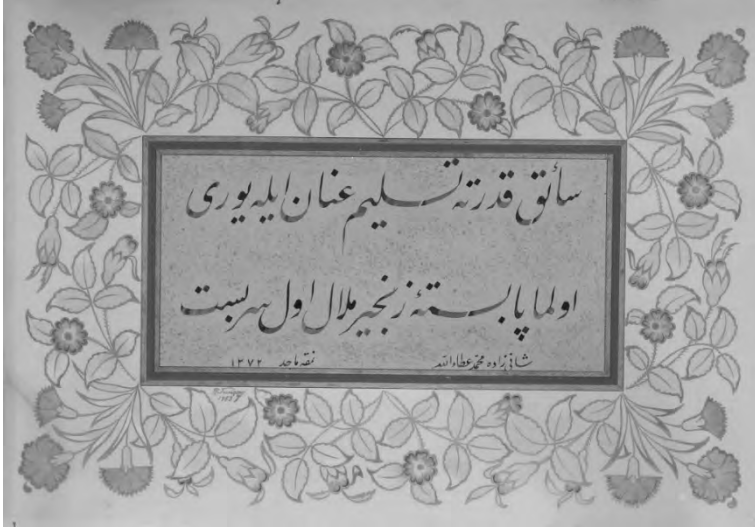 سائق قدرته تسليم عنان ايله يورى
اولما پابستۀ زنجير ملال اول سربست
شانى زاده محمد عطاءالله
نمقه ماجد ١٣٧٢